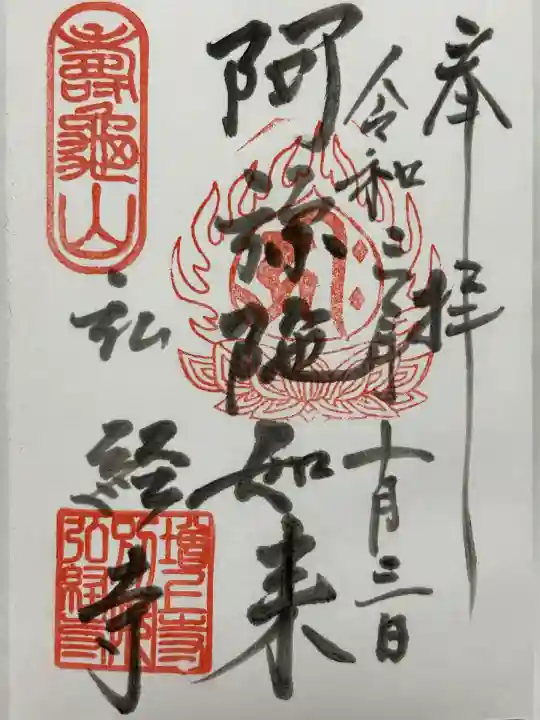 奉拝
令和三年十月三日
阿弥陀如来
壽龜山
弘経寺
増上寺
別院
弘経寺